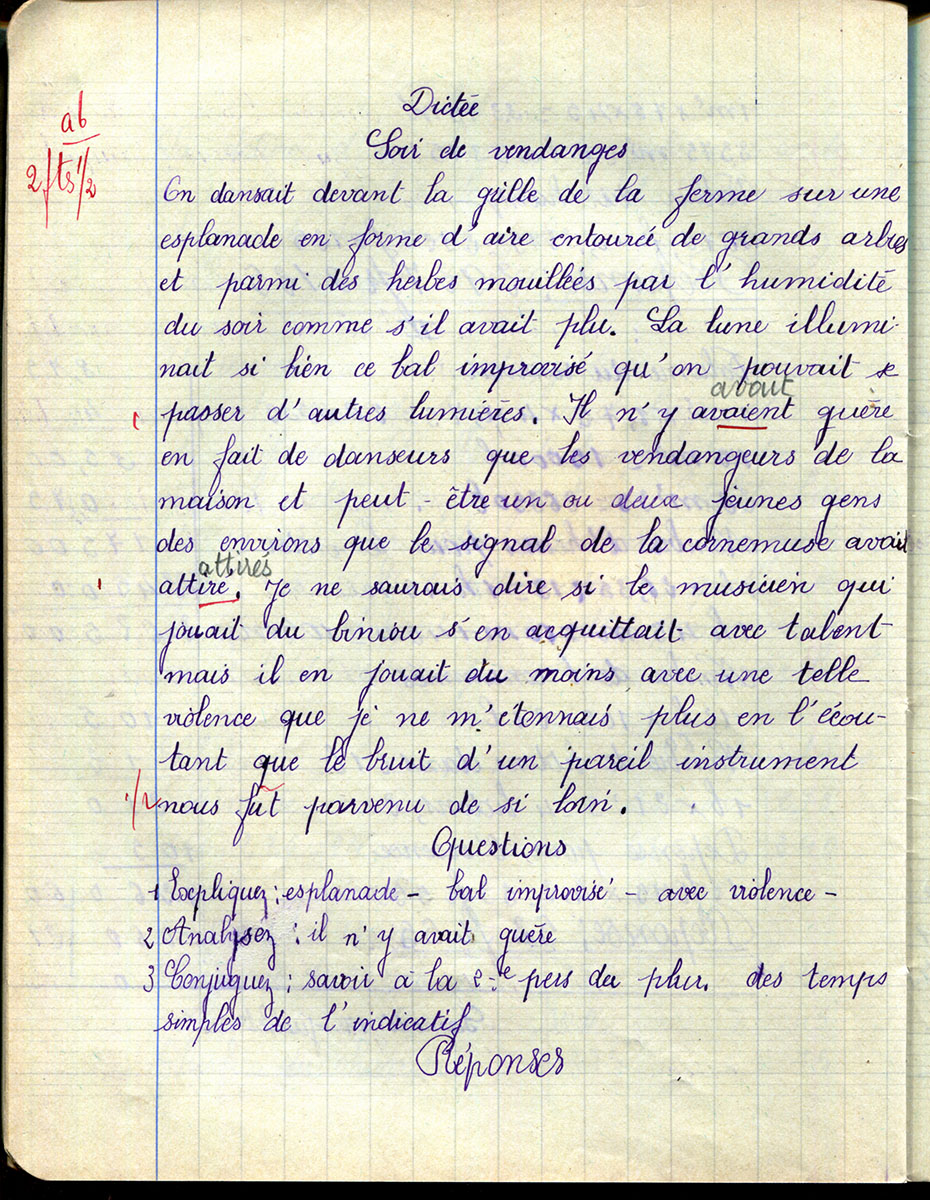 ab
2fts 1/2
Dictée
Soir de vendanges
On dansait devant la grille de la ferme sur une
esplanade en forme d'aire entourée de grands arbres
et parmi des herbes mouillées par l'humidité
du soir comme s'il avait plu. La lune illumi-
nait si bien ce bal improvisé qu'on pouvait se
avait
passer d'autres lumières. Il n'y avaient guère
en fait de danseurs que les vendangeurs de la
maison et peut-être un ou deux jeunes gens
des environs que le signal de la cornemuse avait
attirés
attiré. Je ne saurais dire si le musicien qui
jouait du biniou s'en acquittait avec talent
mais il en jouait du moins avec une telle
violence que je ne m'étonnais plus en l'écou-
tant que le bruit d'un pareil instrument
1/2 nous fût parvenu de si loin.
Questions
1 Expliquez : esplanade - bal improvisé - avec violence -
2 Analysez : il n'y avait guère
3 Conjuguez : savoir à la pers du plur. des temps
simples de l'indicatif
Réponses